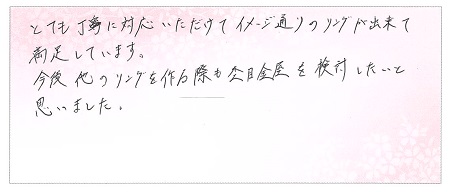 とても丁寧に対応いただけてイメージ通りのリングが出来て
満足しています。
今後他のリングを作る際も杢目金屋を検討したいと
思いました。